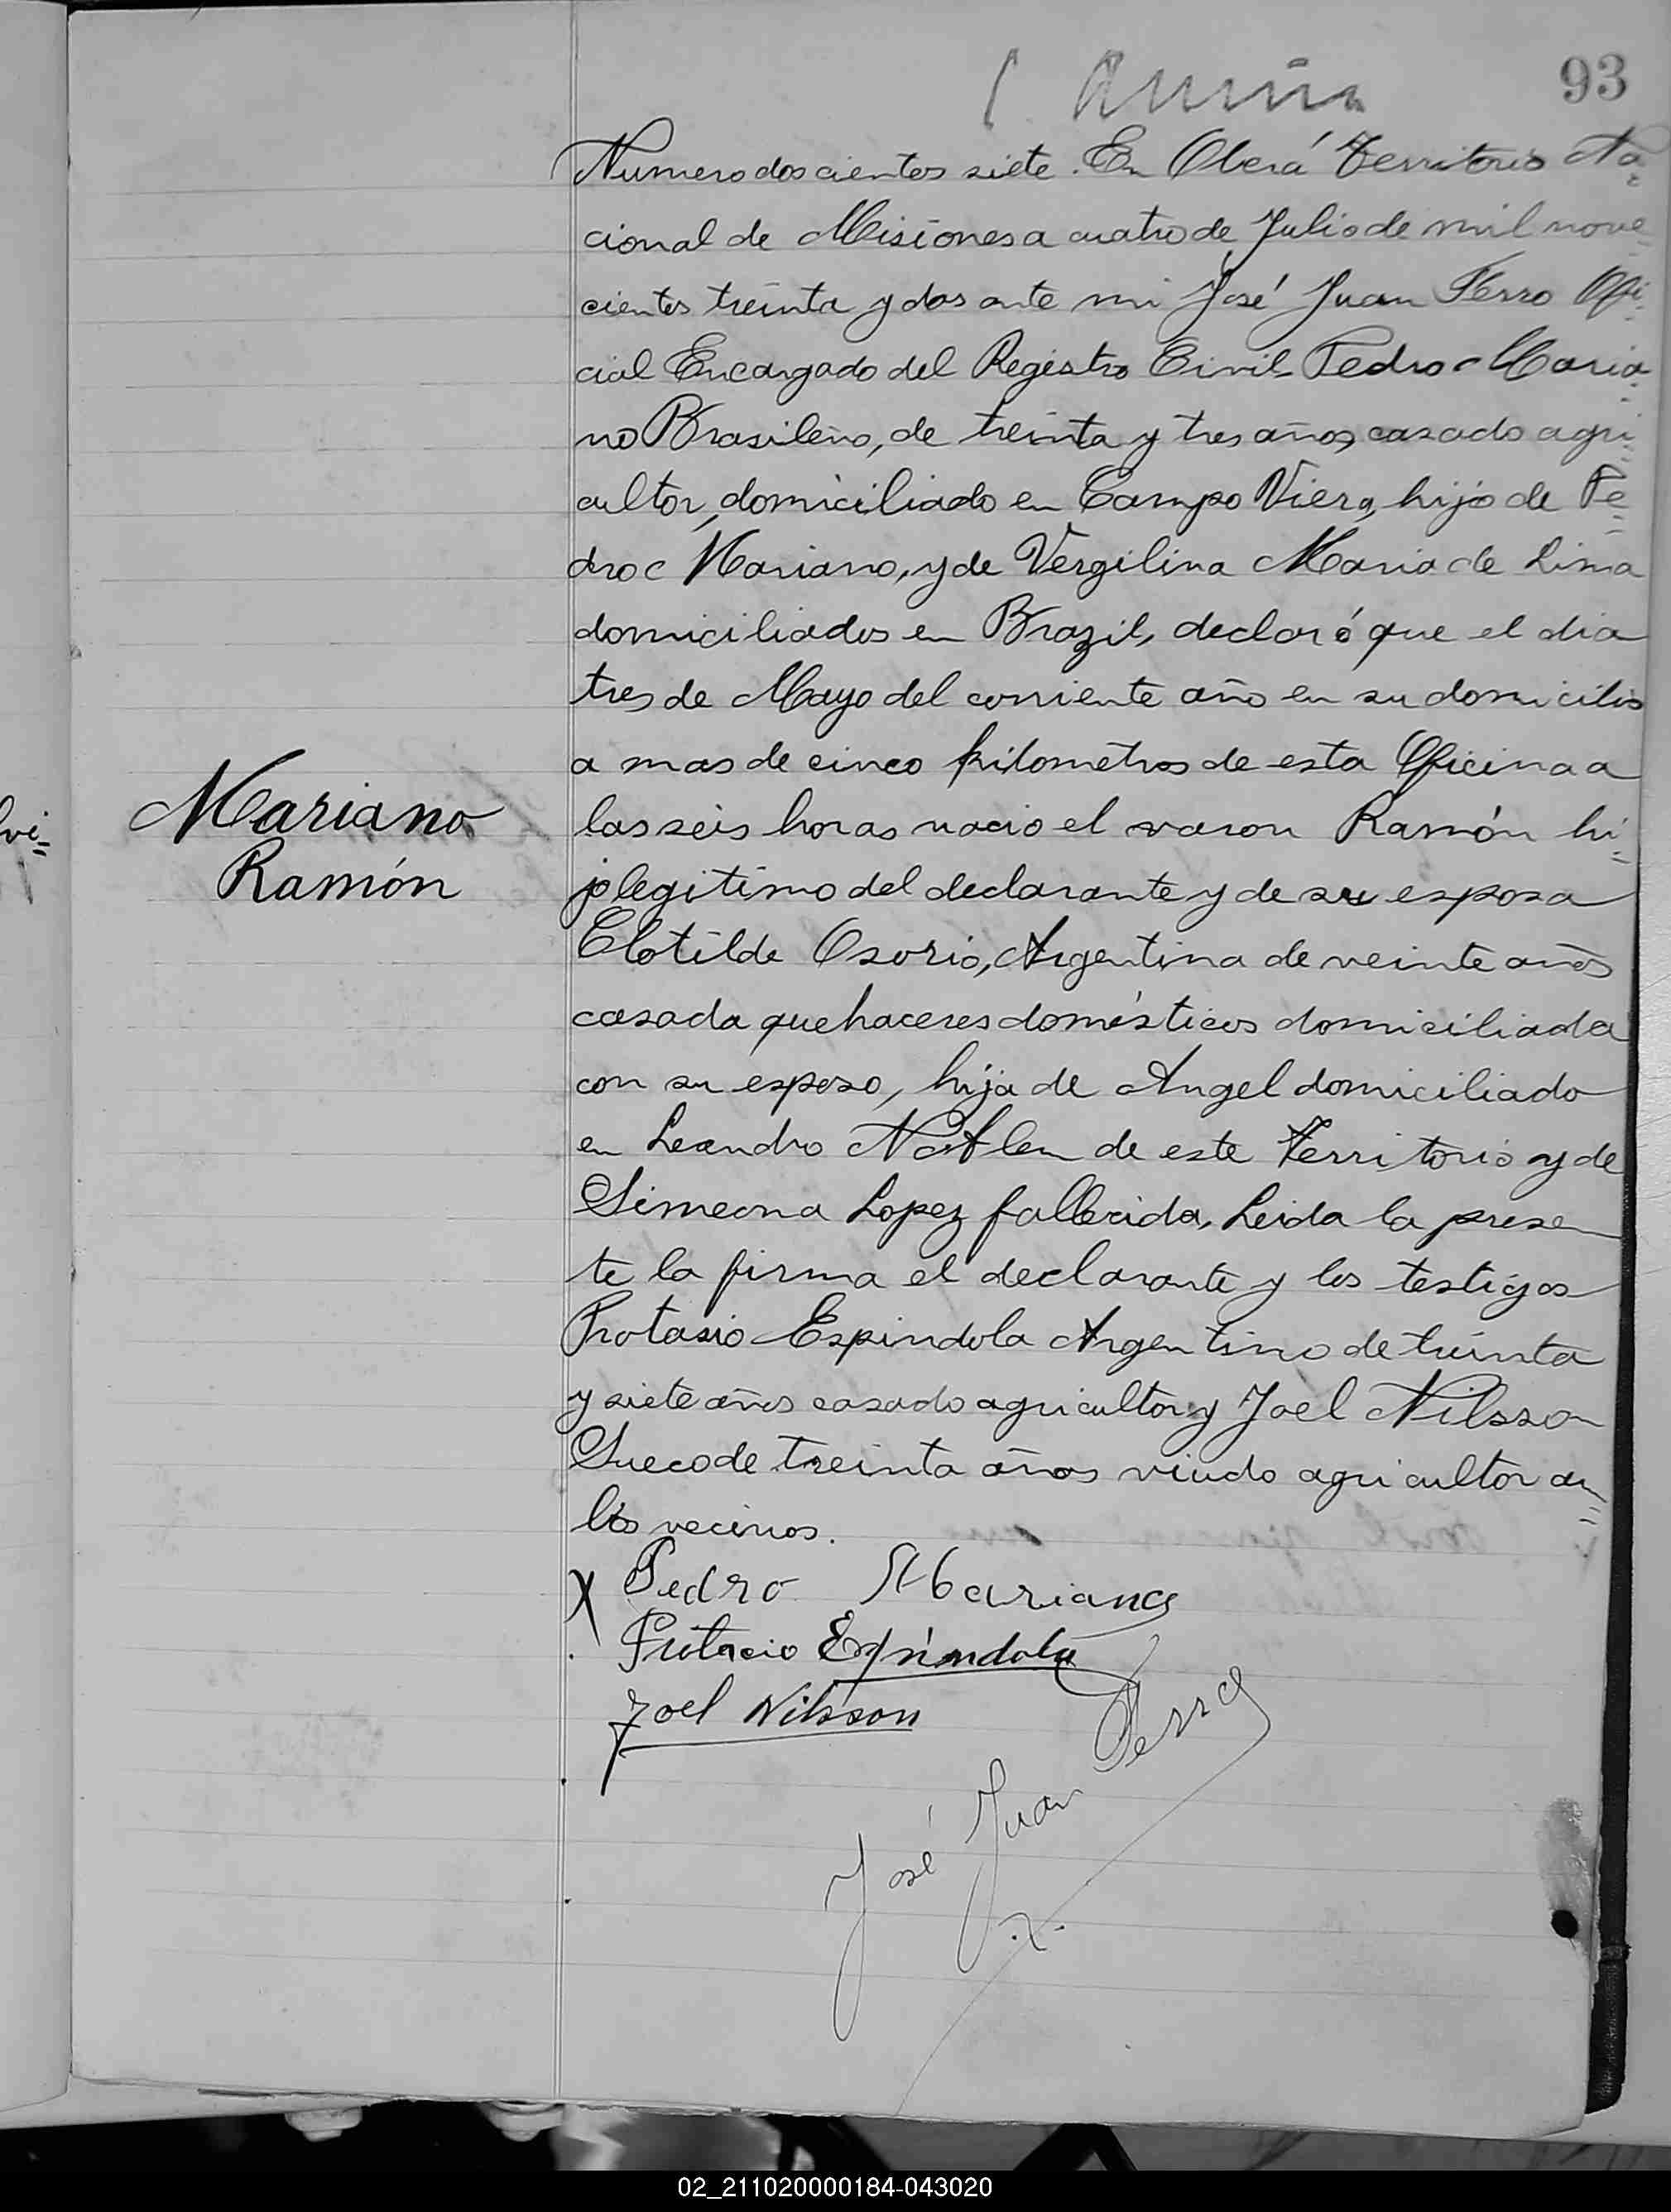 93
Numero doscientos siete. En Oberá Territorio Na=
cional de Misiones a cuatro de Julio de mil nove=
cientos treinta y dos ante mi José Juan Ferro Ofi=
cial Encargado del Registro Civil Pedro Maria=
no Brasileño, de treinta y tres años, casado agri=
cultor, domiciliado en Campo Viera, hijo de Pe=
dro Mariano, y de Vergilina Maria de Lima
domiciliados en Brazil, declaró que el dia
tres de Mayo del corriente año en su domicilio
a mas de cinco kilometros de esta Oficina a
las seis horas nacio el varon Ramón hi=
jo legitimo del declarante y de su esposa
Clotilde Osorio, Argentina de veinte años
casada quehaceres domésticos domiciliada
con su esposo, hija de Angel domiciliado
en Leandro N Alem de este Territorio y de
Simeona Lopez fallecida, Leida la presen
te la firma el declarante y los testigos
Protasio Espindola Argentino de treinta
y siete años casado agricultor y Joel Nilsson
Sueco de treinta años viudo agricultor am=
bos vecinos.
Mariano
Ramón
X Pedro Mariano
Protacio Espindola
Joel Nilsson
José Juan Ferro
02_211020000184-043020